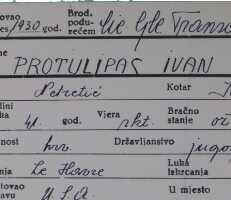 ovao
es/1930. god. Brod. podu- rećem Cie Gle Trans
me
PROTULIPAC IVAN
Petretić Kotar J
dini
ka 41. god. Vjera rkt. Bračno stanje
nost hrv. Državljanstvo jugo
nja Le Havre Luka iskrcanja
tovao
avu U.S.A. U mjesto